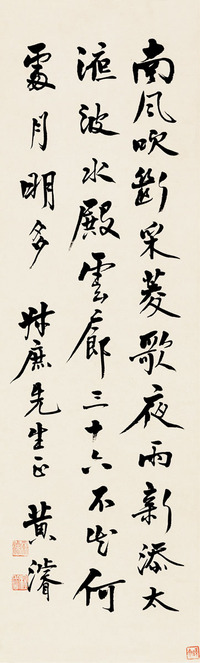 南風吹斷采菱歌夜雨新添太
液波水殿雲廊三十六不知何
處月明多 先生正 黃濬